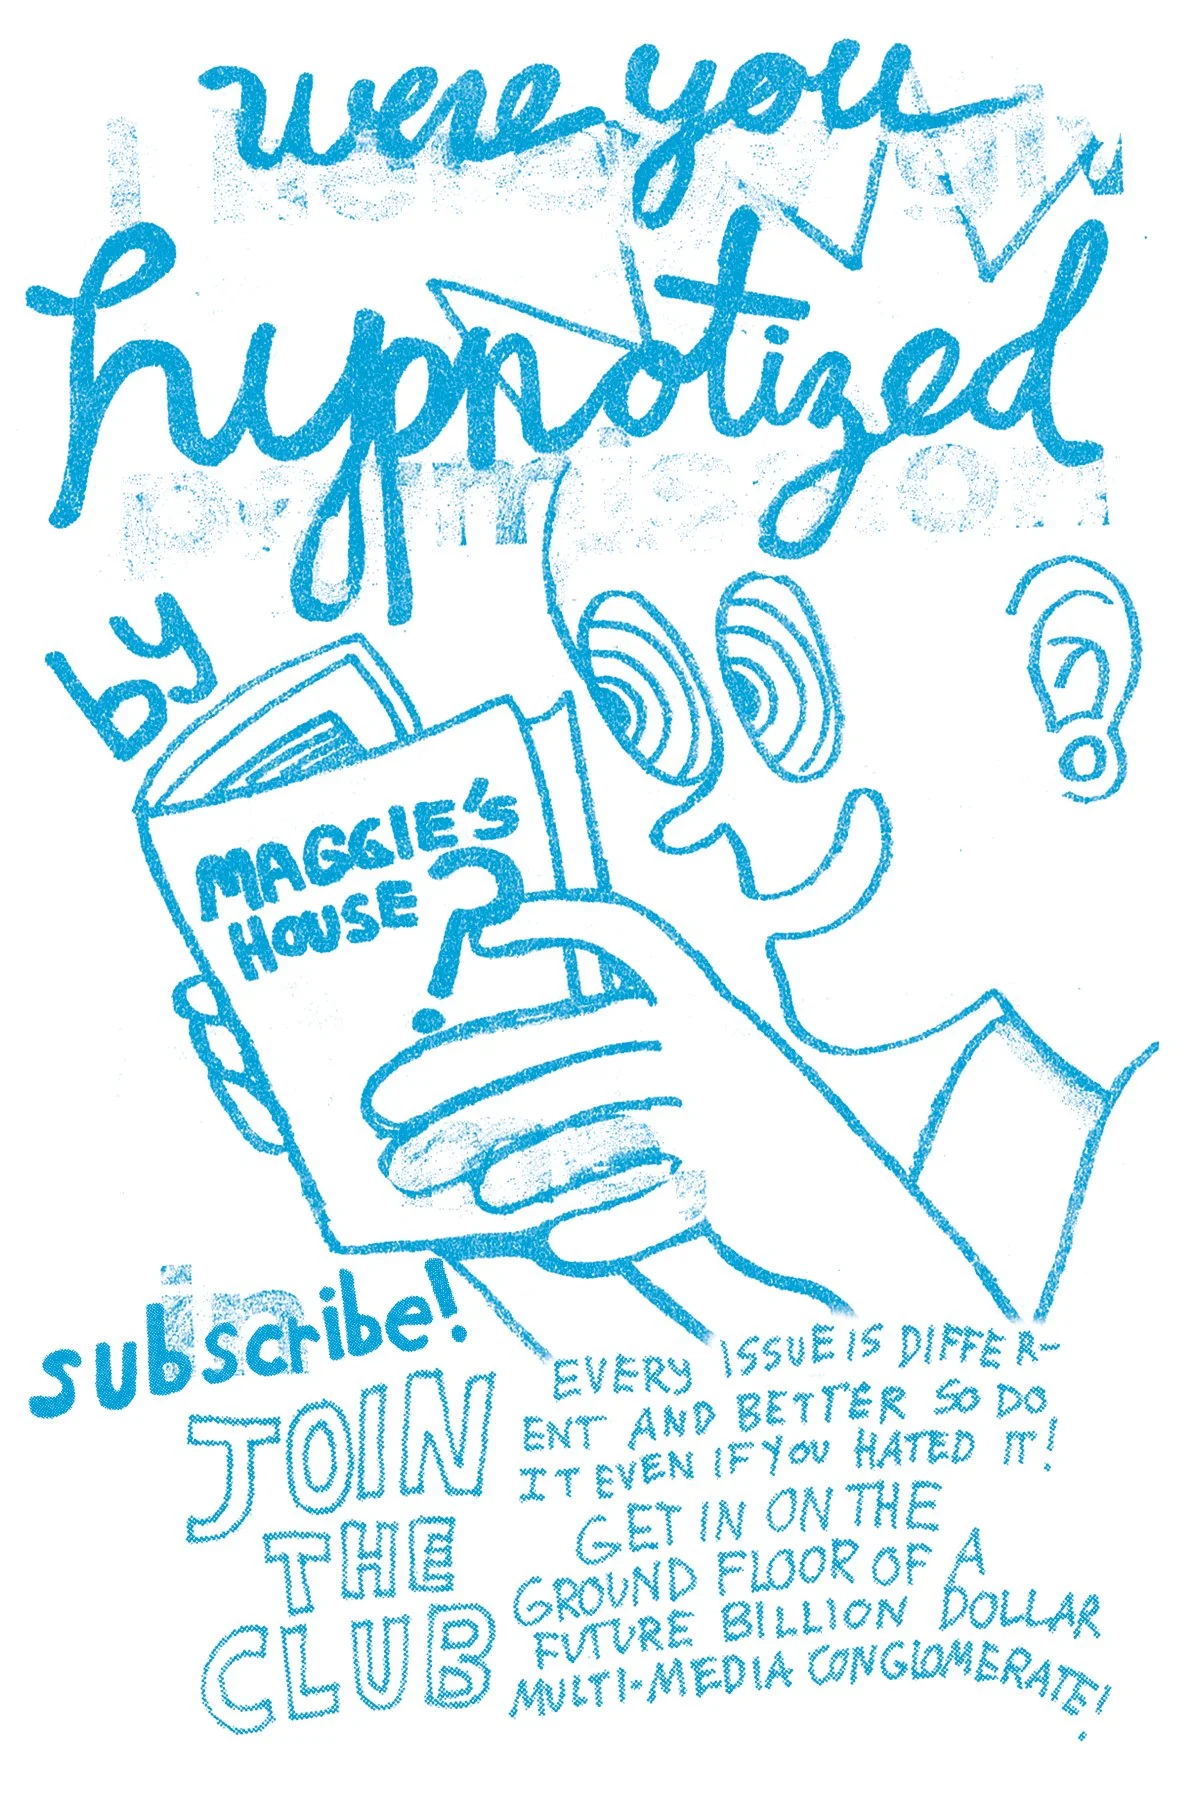 were you
hypnotized
by
MAGGIE'S
HOUSE?
subscribe!
in
JOIN
THE
CLUB
EVERY ISSUE IS DIFFER-
ENT AND BETTER SO DO
IT EVEN IF YOU HATED IT!
GET IN ON THE
GROUND FLOOR OF A
FUTURE BILLION DOLLAR
MULTI-MEDIA CONGLOMERATE!